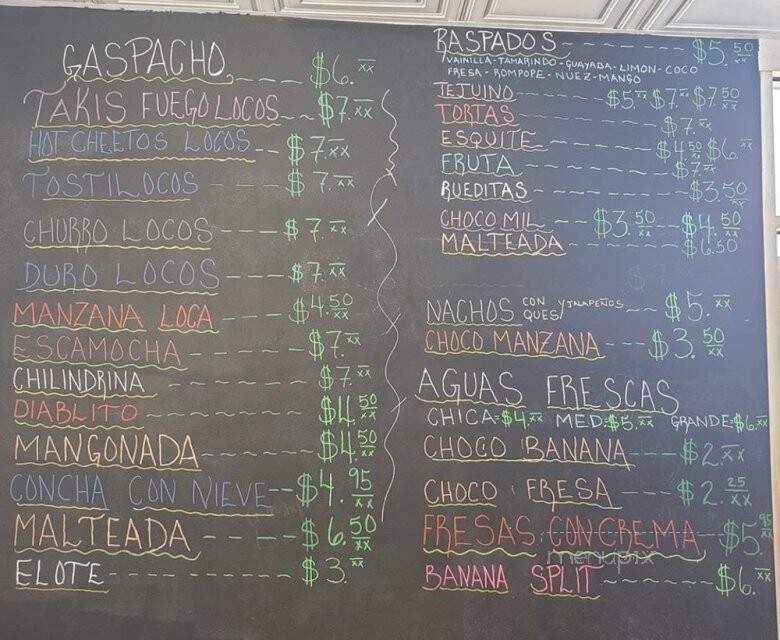 GASPACHO ---- $6.xx
TAKIS FUEGO LOCOS -- $7.xx
HOT CHEETOS LOCOS -- $7.xx
TOSTILOCOS ---- $7.xx
CHURRO LOCOS ---- $7.xx
DURO LOCOS ---- $7.xx
MANZANA LOCA ---- $4.50
ESCAMOCHA ----- $7.xx
CHILINDRINA ------ $7.xx
DIABLITO ------ $4.50
MANGONADA ---- $4.50
CONCHA CON NIEVE -- $4.95
MALTEADA ---- $6.50
ELOTE -------- $3.xx
RASPADOS ------ $5.50
VAINILLA-TAMARINDO-GUAYABA-LIMON-COCO
FRESA-ROMPOPE-NUEZ-MANGO
TEJUINO ---- $5.xx $7.xx $7.50
TORTAS ------ $7.xx
ESQUITE ----- $4.50 $6.xx
FRUTA ------ $7.xx
RUEDITAS ------ $3.50
CHOCO MIL -- $3.50 -- $4.50
MALTEADA ----- $6.50
NACHOS CON QUES/ Y JALAPEÑOS -- $5.xx
CHOCO MANZANA --- $3.50
AGUAS FRESCAS
CHICA=$4.xx MED=$5.xx GRANDE=$6.xx
CHOCO BANANA --- $2.xx
CHOCO FRESA --- $2.25
FRESAS CON CREMA -- $5.95
menupix
BANANA SPLIT ------ $6.xx